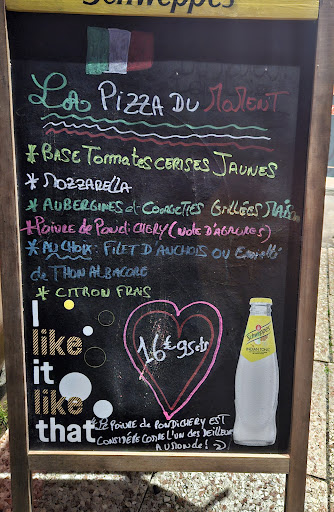 Schweppes
La PIZZA DU MOMENT
* BASE TOMATES CERISES JAUNES
* MOZZARELLA
* AUBERGINES et COURGETTES GRILLÉES MAISON
* POIVRE DE PONDICHERY (NOTE D'AGRUMES)
* AU CHOIX: FILET D'ANCHOIS OU
de THON ALBACORE
* CITRON FRAIS
I
like
it
like
that
16€95
Schweppes
INDIAN TONIC
POIVRE de PONDICHERY EST
CONSIDÉRÉ COMME L'UN DES MEILLEUR
AU MONDE!